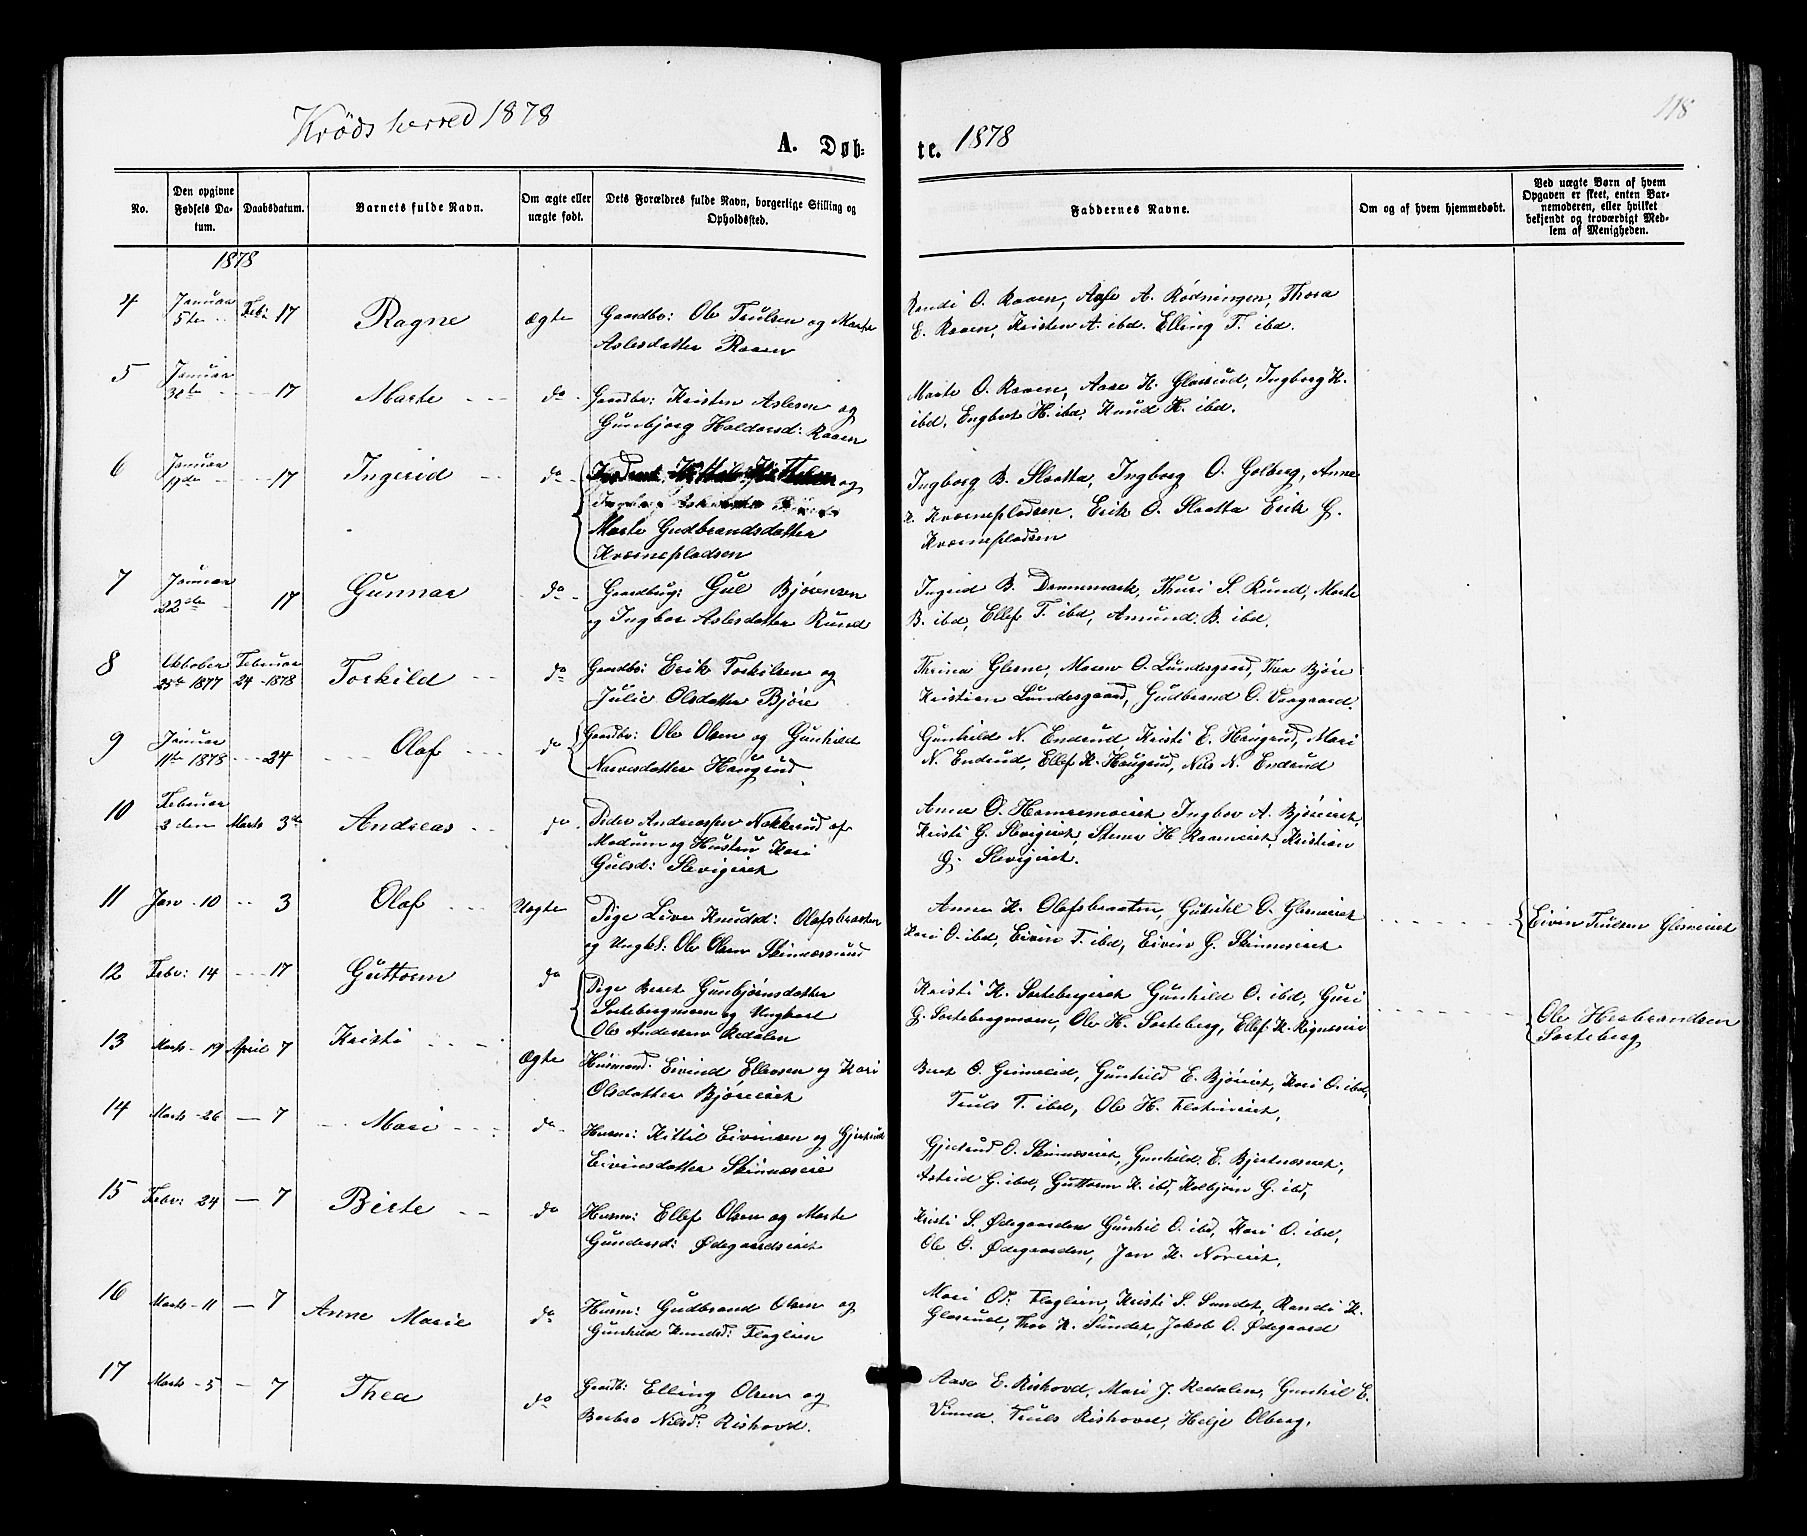 Krødsherred 1878
A. Døb-
te. 1878
118
No.
Den opgivne Fødsels Datum.
Daabsdatum.
Barnets fulde Navn.
Om ægte eller uægte født.
Dets Forældres fulde Navn, borgerlige Stilling og Opholdssted.
Faddernes Navne.
Om og af hvem hjemmedøbt.
Ved uægte Børn af hvem Opgaven er skeet, enten Barnemoderen, eller hvilket bekjendt og troværdigt Medlem af Menigheden.
1878
4 Januar 5te Feb: 17 Ragne ægte Gaardbr: Ole Trulsen og Marte
Aslesdatter Raaen
Randi O. Raaen, Aase A. Rødningen, Thora
E. Raaen, Kristen A. ibd. Elling T. ibd.
5 Januar 17 Marte do Gaardbr: Kristen Aslesen og
Gunbjørg Haldorsd: Raaen
Marte O. Raaen, Aase K. Glasrud, Ingborg K.
ibd, Engbret H. ibd, Knud K. ibd.
6 Januar 19de 17 Ingerid do og
Marte Gudbrandsdatter
Kværnepladsen
Ingborg B. Slaatta, Ingborg O. Golberg, Anne
K. Kværnepladsen. Erik O. Slaatta Erik G.
Kværnepladsen
7 Januar 22de 17 Gunnar do Gaardbrug: Gul Bjørnsen
og Ingbor Aslesdatter Rund
Ingrid B. Dannemark, Thuri S. Rund, Marte
B. ibd, Ellef T. ibd, Amund B. ibd.
8 Oktober 25de 1877 Februar 24 1878 Torkild do Gaardbr: Erik Torkilsen og
Julie Olsdatter Bjøre
Thrina Glesne, Maren O. Lundesgaard, Thea Bjøre
Kristian Lundesgaard, Gudbrand O. Vaagaard.
9 Januar 11te 1878 24 Olaf do Gaardbr: Ole Olsen og Gunhild
Narvesdatter Haugrud
Gunhild N. Endrud, Kristi E. Haugrud, Mari
N. Endrud, Ellef K. Haugrud, Nils N. Endrud
10 Februar 3 den Marts 3de Andreas do Peder Andreassen Nakkerud af
Modum og Hustru Kari
Gulsd: Slevigeiet
Anne O. Hamremoeiet, Ingbor A. Bjøreeiet,
Kristi G. Slevigeiet, Stener H. Raameiet, Kristian
G. Slevigeiet.
11 Jan 10 3 Olaf Uægte Pige Live Knudsd: Olafsbraaten
og Ungk: Ole Olsen Skinnæsrud
Anne K. Olafsbraaten, Gunhil O. Glesneeiet
Kari O. ibd, Eivin T. ibd, Eivin G. Skinneseiet
Eivin Trulsen Glesneeiet
12 Febr: 14 17 Guttorm do Pige Beret Gunbjørnsdatter
Sortebergmoen og Ungkarl
Ole Andersen Redalen
Kristi K. Sortebergeiet Gunhild O. ibd, Guri
G. Sortebergmoen, Ole H. Sorteberg, Ellef K.
Ole Herbrandsen
Sorteberg
13 Marts 19 April 7 Kristi Ægte Husmand. Eivind Ellevsen og Kari
Olsdatter Bjøreeiet
Beret O. Grimelid, Gunhild E. Bjøreeiet, Kari O. ibd,
Truls T. ibd, Ole H.
14 Marts 26 7 Mari do Husm: Kittil Eivinsen og Gjertrud
Eivinsdatter Skinnæseie
Gjertrud O. Skinnæseiet, Gunhild. E. Bjertnæseiet,
Astrid G. ibd, Guttorm K. ibd, Kolbjørn G. ibd,
15 Febr: 24 7 Birte do Husm: Ellef Olsen og Marte
Gundersd: Ødegaardseiet
Kristi S. Ødegaarden Gunhil O. ibd, Kari O. ibd,
Ole O. Ødegaarden, Jan K. Noreeiet,
16 Marts 11 7 Anne Marie do Husm: Gudbrand Olsen og
Gunhild Knudsd: Flaglien
Mari Od: Flaglien, Kristi S. Sundet, Randi K.
Glasrud, Thor K. Sundet, Jakob O. Ødegaard
17 Marts 5 7 Thea do Gaardb: Elling Olsen og
Berbro Nilsd: Rishovd.
Aase E. Rishovd, Mari J. Redalen, Gunhil E.
Vinna. Truls Rishovd, Helje Olberg.